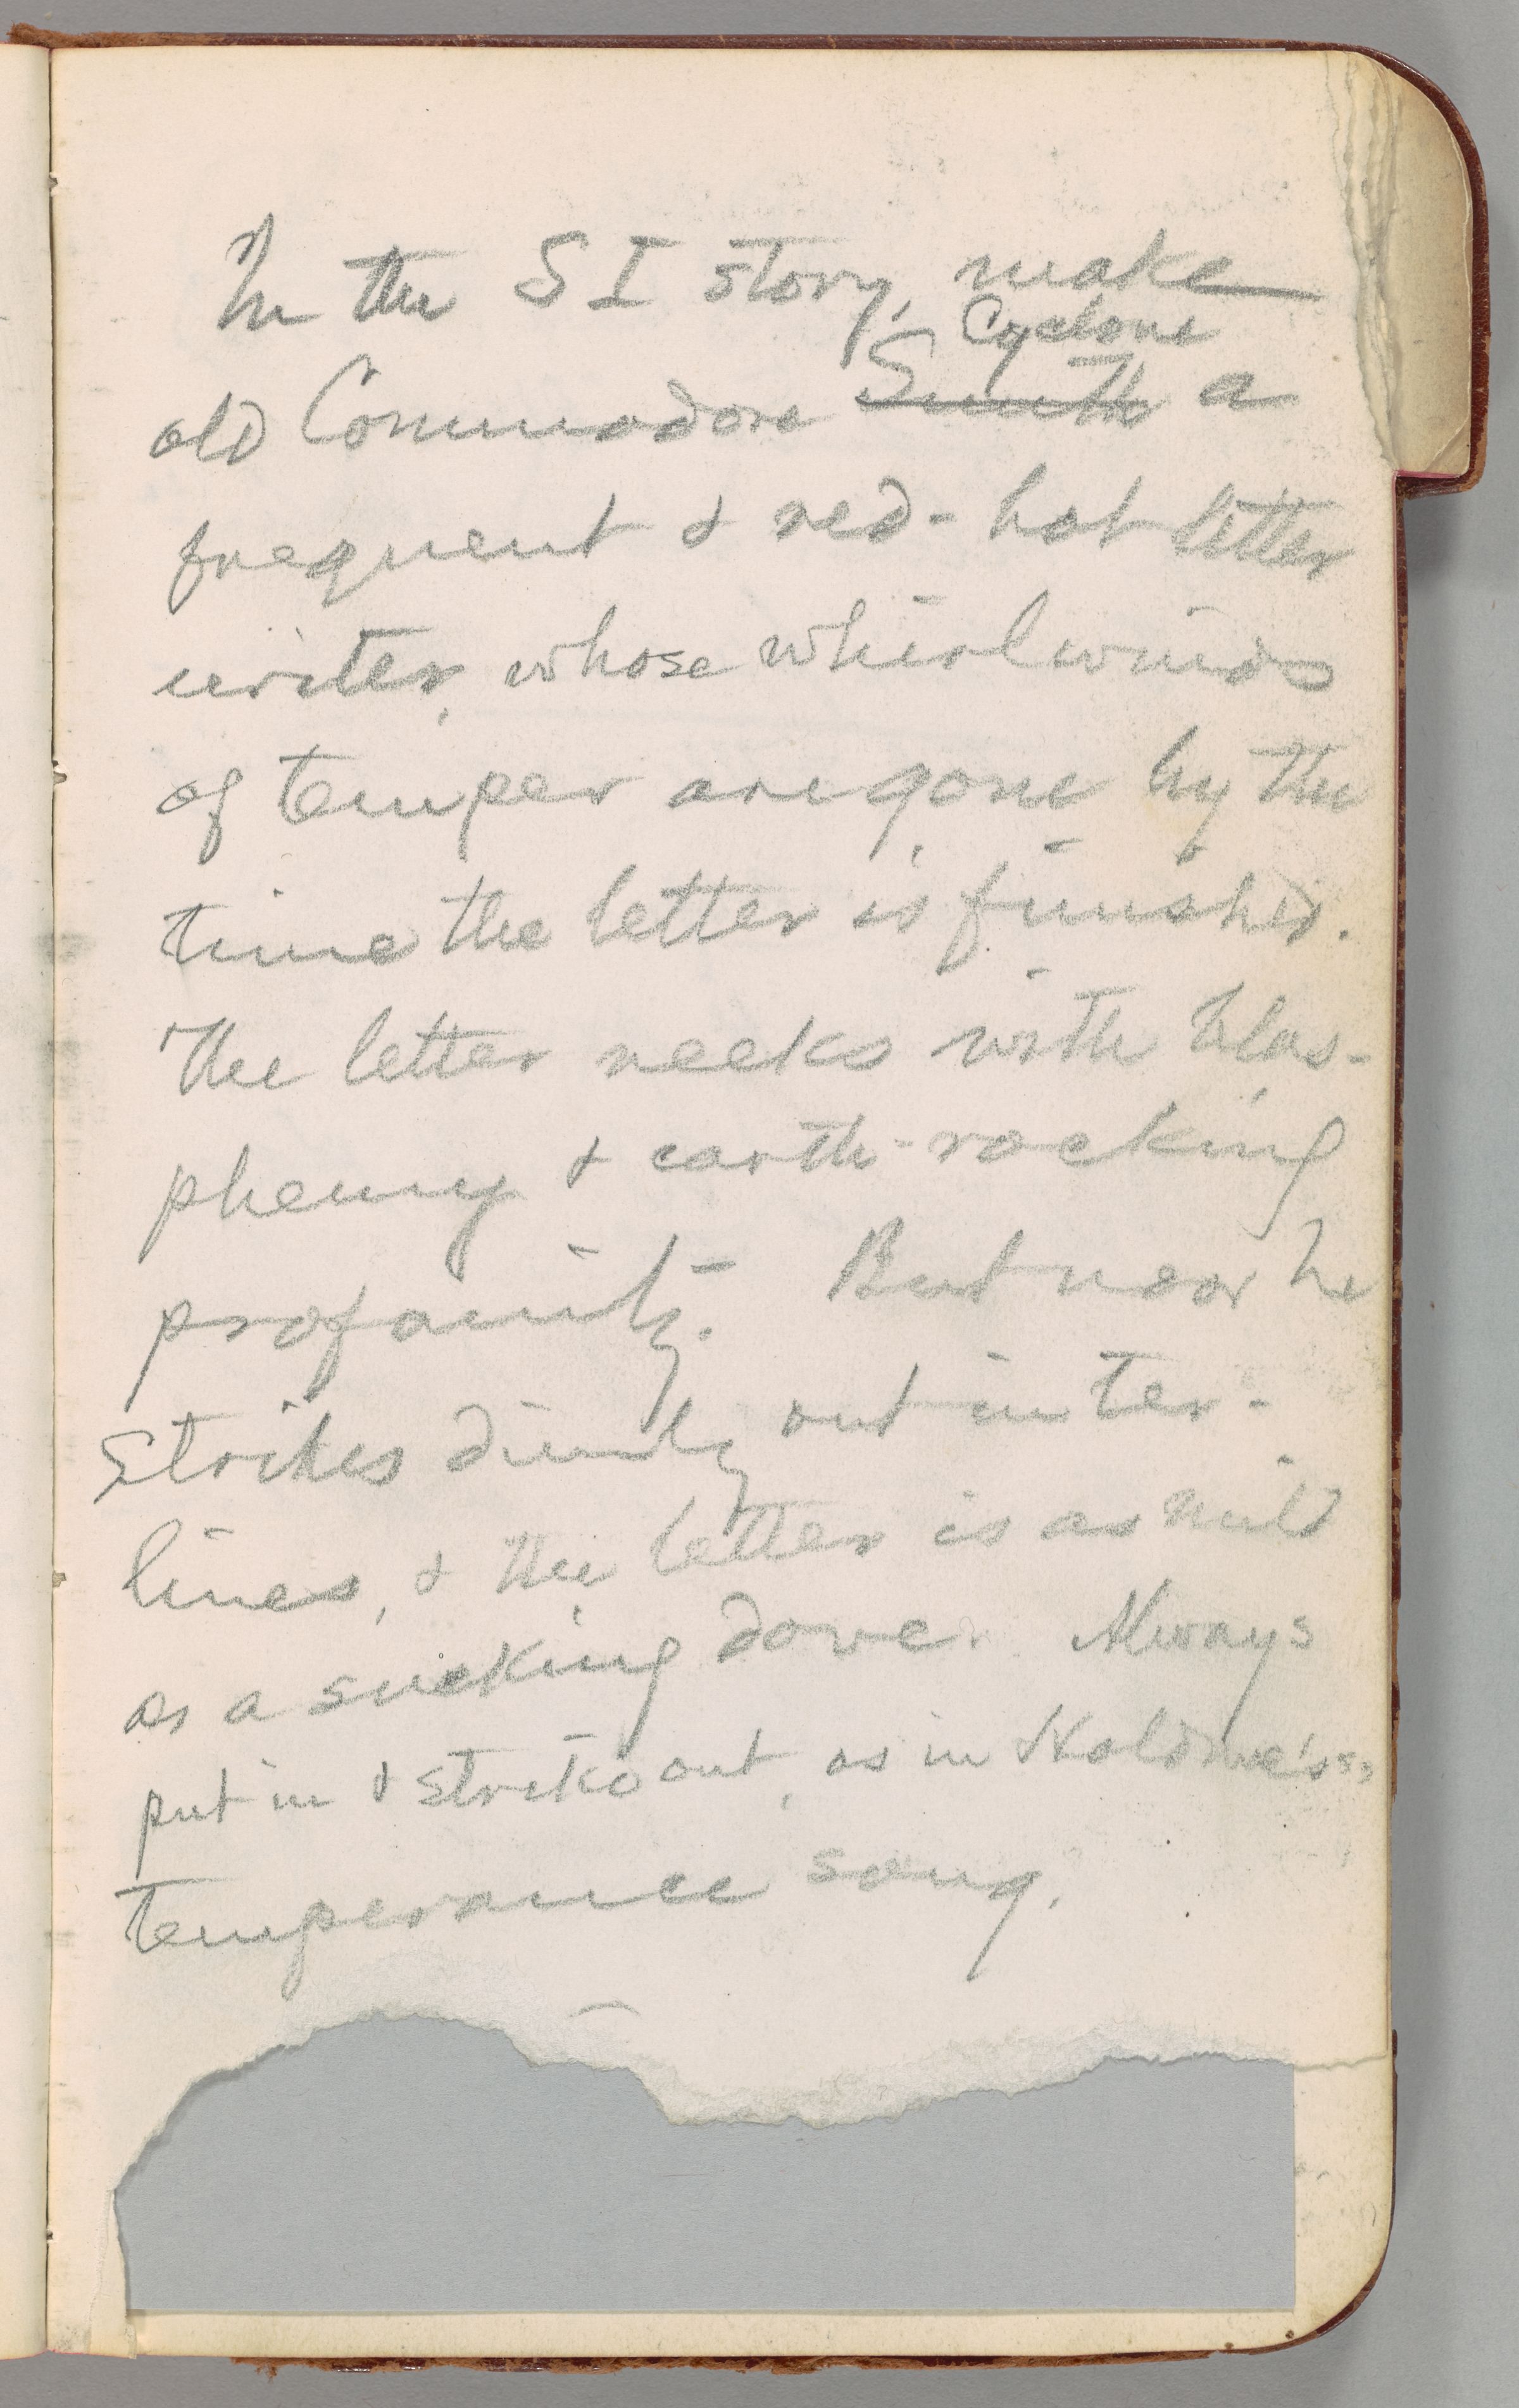 In the S I story, make
Cyclone
old Commodore Smith a
frequent & red-hot letter
writer, whose whirlwinds
of temper are gone by the
time the letter is finished.
The letter reeks with blas-
phemy & earth-rocking
profanity. But now he
strikes dimly out inter-
lines, & the letter is as mild
as a sucking dove. Always
put in & strike out, as in
temperance song.